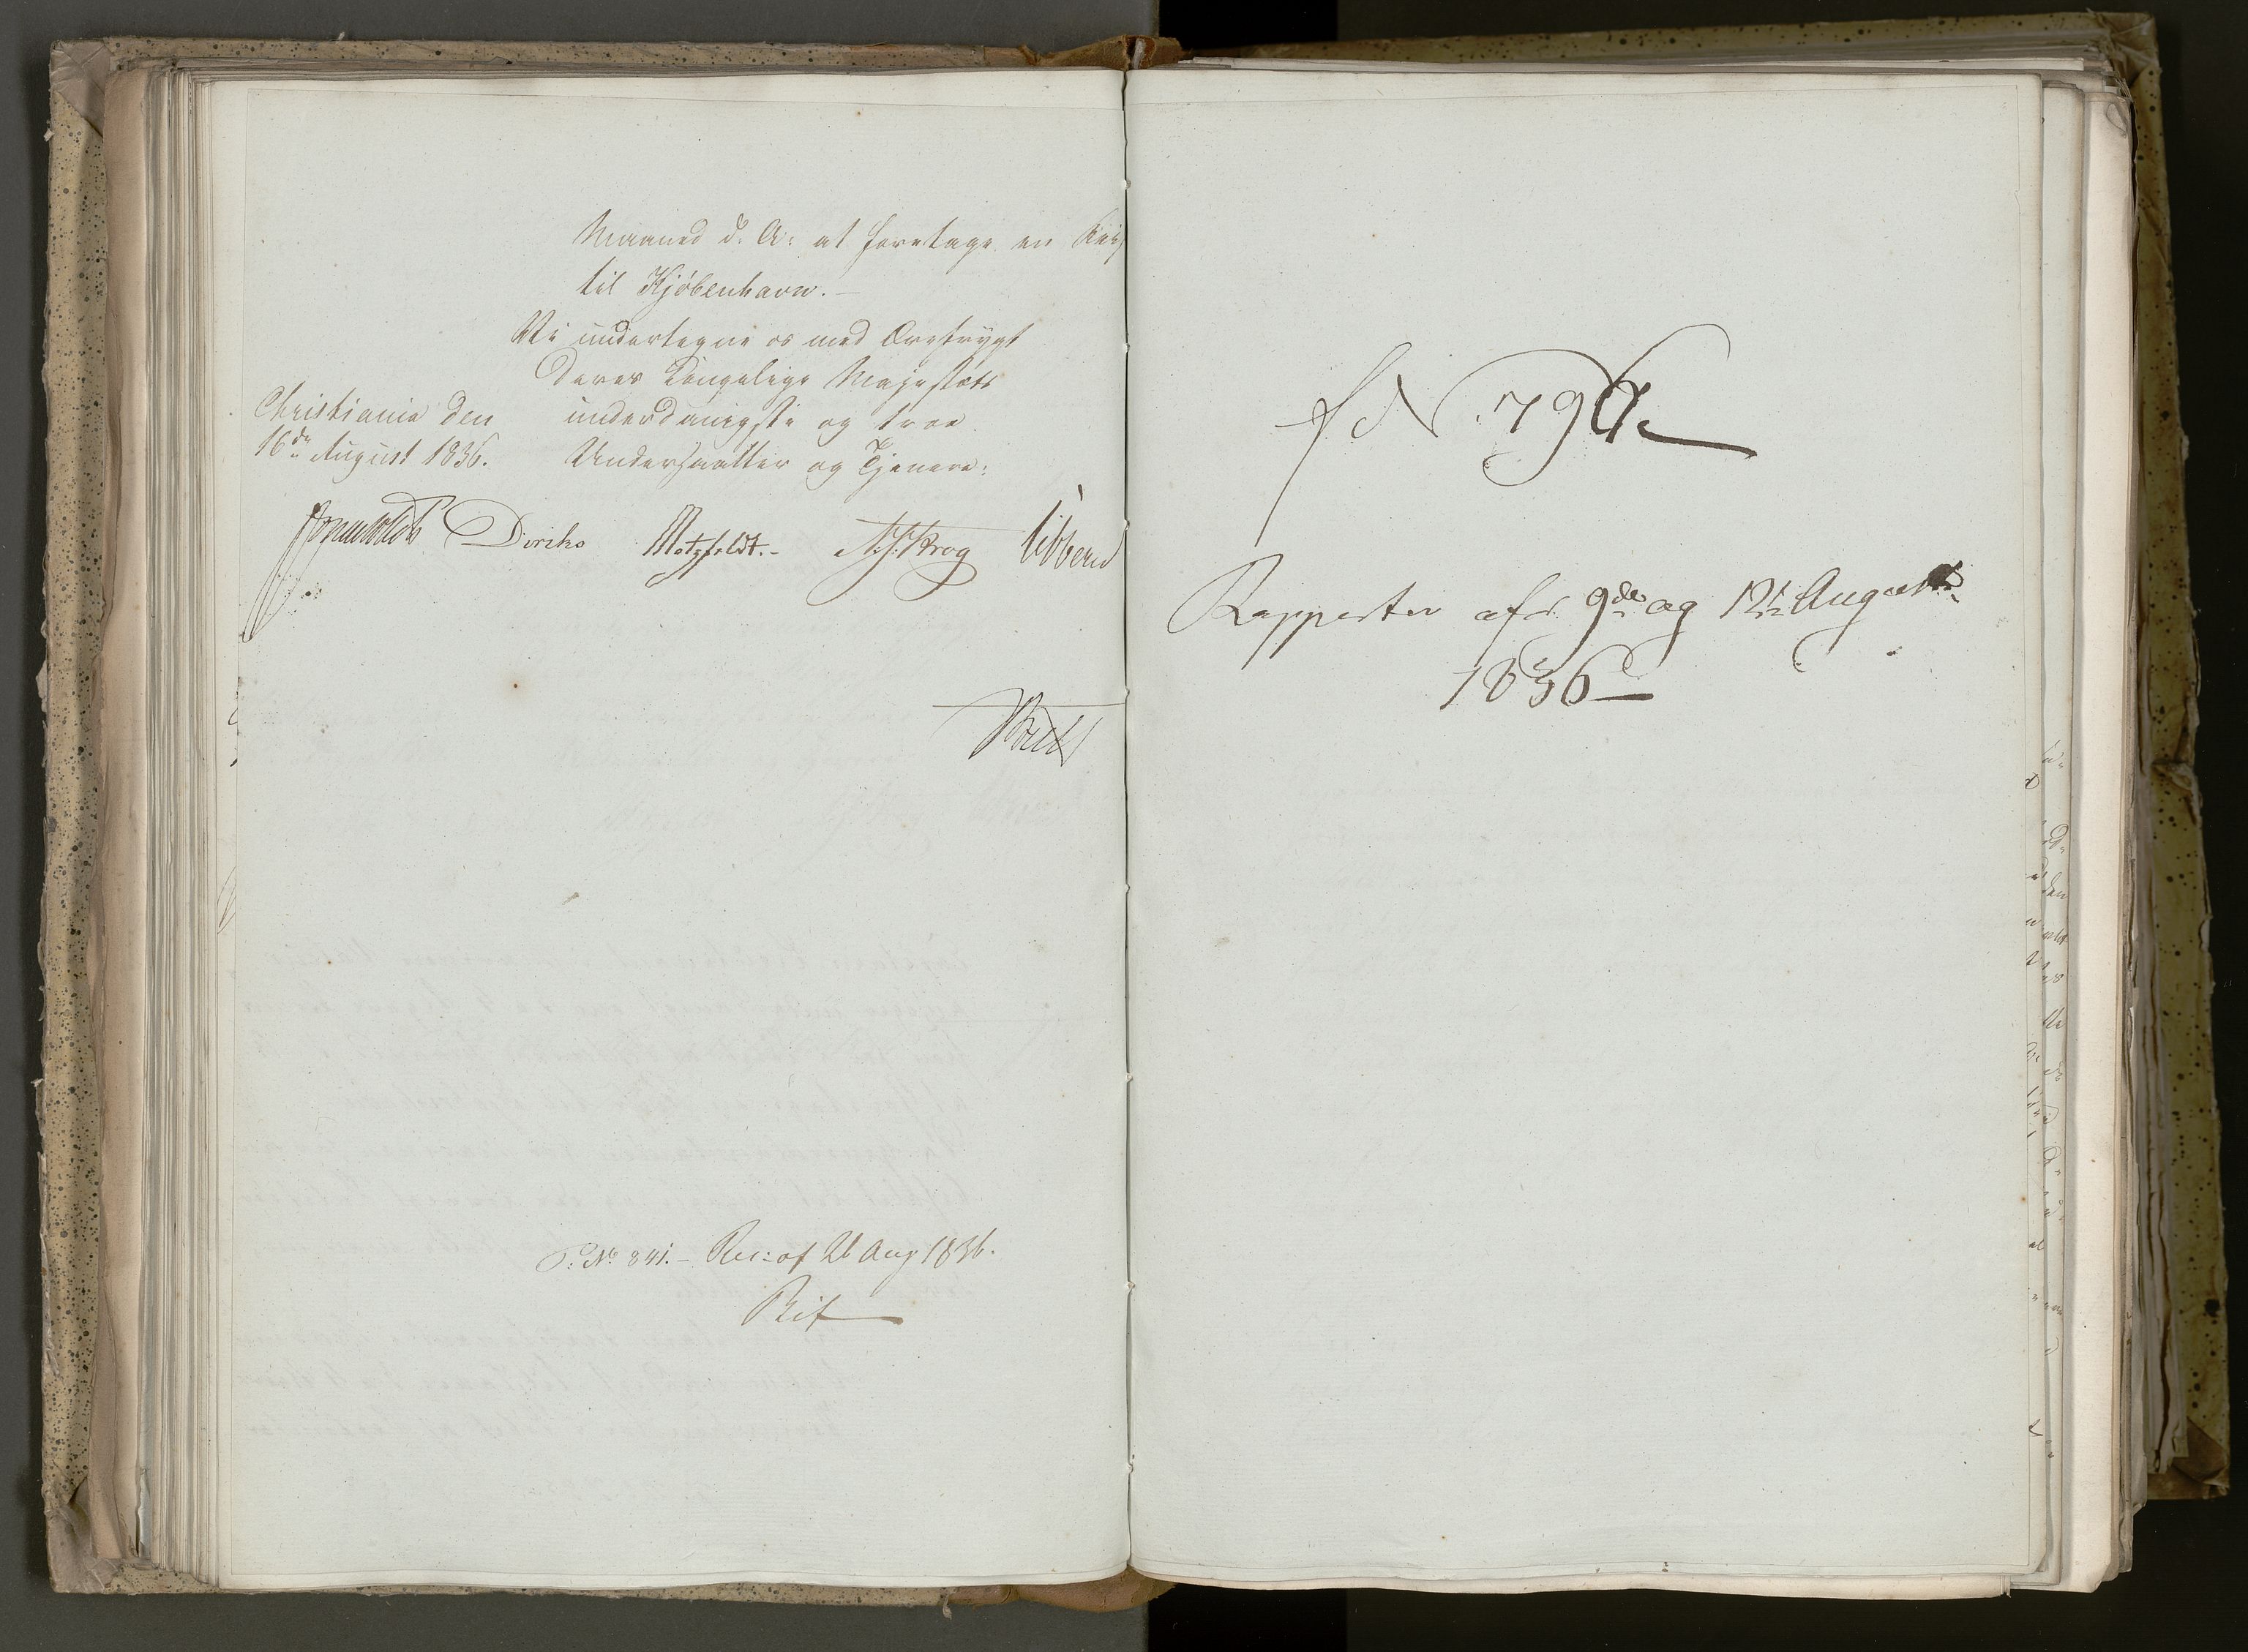 Maaned d: A: at foretage en Reise
til Kjöbenhavn. —
Vi undertegne os med Ærefrygt
Deres Kongelige Majestæts
Christiania den
16de August 1836.
underdanigste og troe
Undersaatter og Tjenere:
Diriks Motzfeldt. - Krog Vibbe
P: No 841. - Res: af 26 Aug 1836.
No 79
Rapporter af 9de og 12te August
1836 —